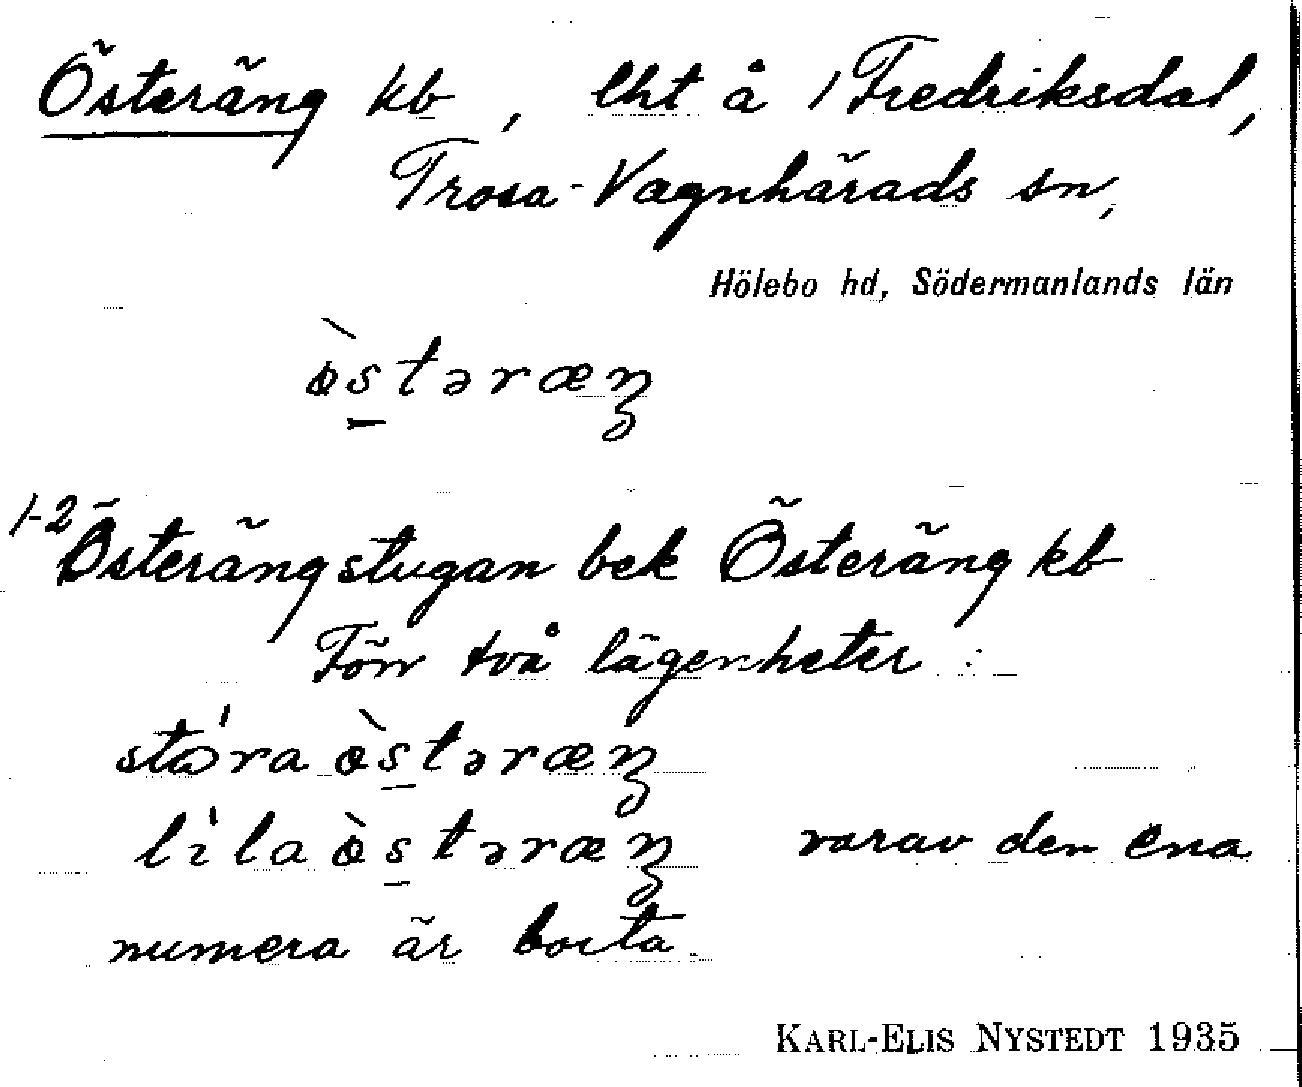 Österäng kb, lht å 1 Fredriksdal,
Trosa-Vagnhärads sn,
Hölebo hd, Södermanlands län
ɵ̀stəræŋ
1-2 Österängstugan bek Österäng kb
Förr två lägenheter :
stóra ɵ̀stəræŋ
líla ɵ̀stəræŋ varav den ena
numera är borta.
KARL-ELIS NYSTEDT 1935